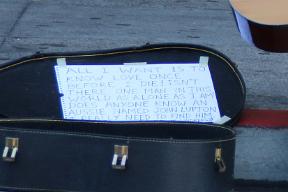 ALL I WANT IS TO
KNOW LOVE ONCE
BEFORE I DIE. ISN'T
THERE ONE MAN IN THIS
WORLD AS ALONE AS I AM
DOES ANYONE KNOW AN
AUSSIE NAMED JOHN LUPTON
I REALLY NEED TO FIND HIM